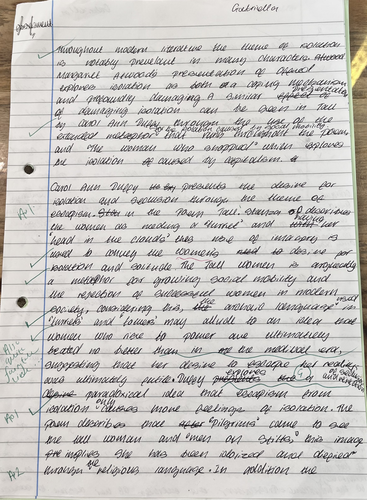 Gabriella
Throughout modern literature the theme of isolation
is notably prevalent in many characters. Atwood
Margaret Atwoods presentation of Offred
explores isolation as both a coping mechanism
and profoundly damaging. A similar
of damaging isolation can be seen in Tall
by Carol Ann Duffy through the use of the
by the isolation caused by social mobility
extended metaphor that runs throughout the poem
and "The woman who shopped" which explores
the isolation caused by capitalism.
Carol Ann Duffy presents the desire for
isolation and seclusion through the theme of
escapism. in the Poem Tall. Duffy describes
the women as needing a "turret" and having
head in the clouds this use of imagery is
used to convey the womens desire for
isolation and solitude. The Tall women is arguably
a metaphor for growing social mobility and
the rejection of successful women in modern
society, considering this, the archaic language in
"turrets" and "towers" may allude to an idea that
women who rise to power are ultimately
treated no better than in the medieval era,
suggesting that her desire to escape her reality
was ultimately futile. Duffy explores
paradoxical idea that escapism from
isolation only causes more feelings of isolation. The
poem describes that "pilgrims" came to see
the tall woman and "men on stilts", this image
implies she has been idolized and deified
through the religious language. In addition the
AO1
AO1
AO2